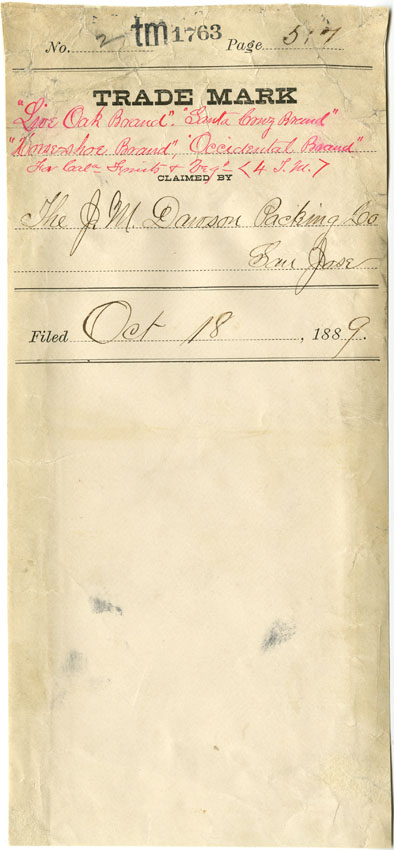 No. 2 tm 1763 Page 517
TRADE MARK
"Live Oak Brand". "Santa Cruz Brand"
"Horse-shoe Brand", "Occidental Brand"
For Cal^a Fruits & Veg^s <4 T.M.>
CLAIMED BY
The J. M. Dawson Packing Co
San Jose
Filed Oct 18, 1889.